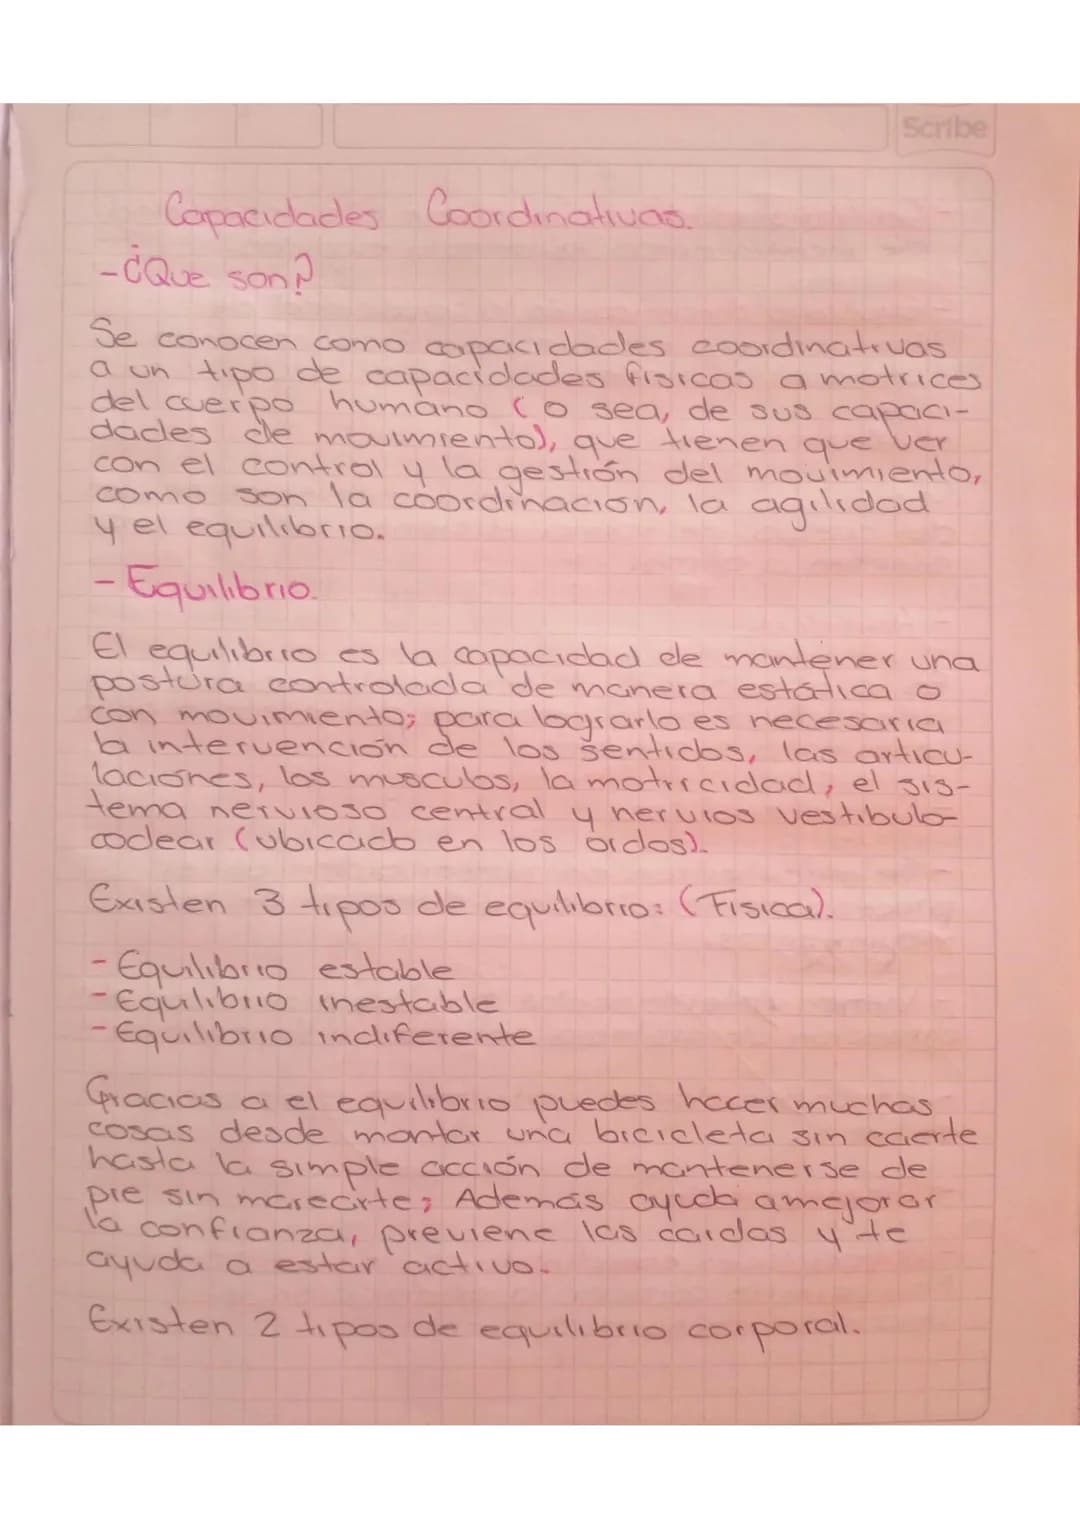 Scribe
Capacidades Coordinativas.
-¿Que son?
Se conocen como capacidades coordinativas
a un tipo de capacidades físicas a motrices
del cuerpo humano (o sea, de sus capaci-
dades de movimiento), que tienen que ver
con el control y la gestión del movimiento,
como son la coordinacion, la agilidad
y el equilibrio.
- Equilibrio.
El equilibrio es la capacidad de mantener una
postura controlada de manera estática o
con movimiento; para lograrlo es necesaria
la intervención de los sentidos, las articu-
laciones, los musculos, la motricidad, el sis-
tema nervioso central y nervios vestíbulo-
coclear (ubicado en los oídos).
Existen 3 tipos de equilibrio: (Física).
- Equilibrio estable
- Equilibrio inestable
- Equilibrio indiferente
Gracias a el equilibrio puedes hacer muchas
cosas desde montar una bicicleta sin caerte
hasta la simple acción de mantenerse de
pie sin marearte; Además ayuda a mejorar
la confianza, previene las caidas y te
ayuda a estar activo.
Existen 2 tipos de equilibrio corporal.